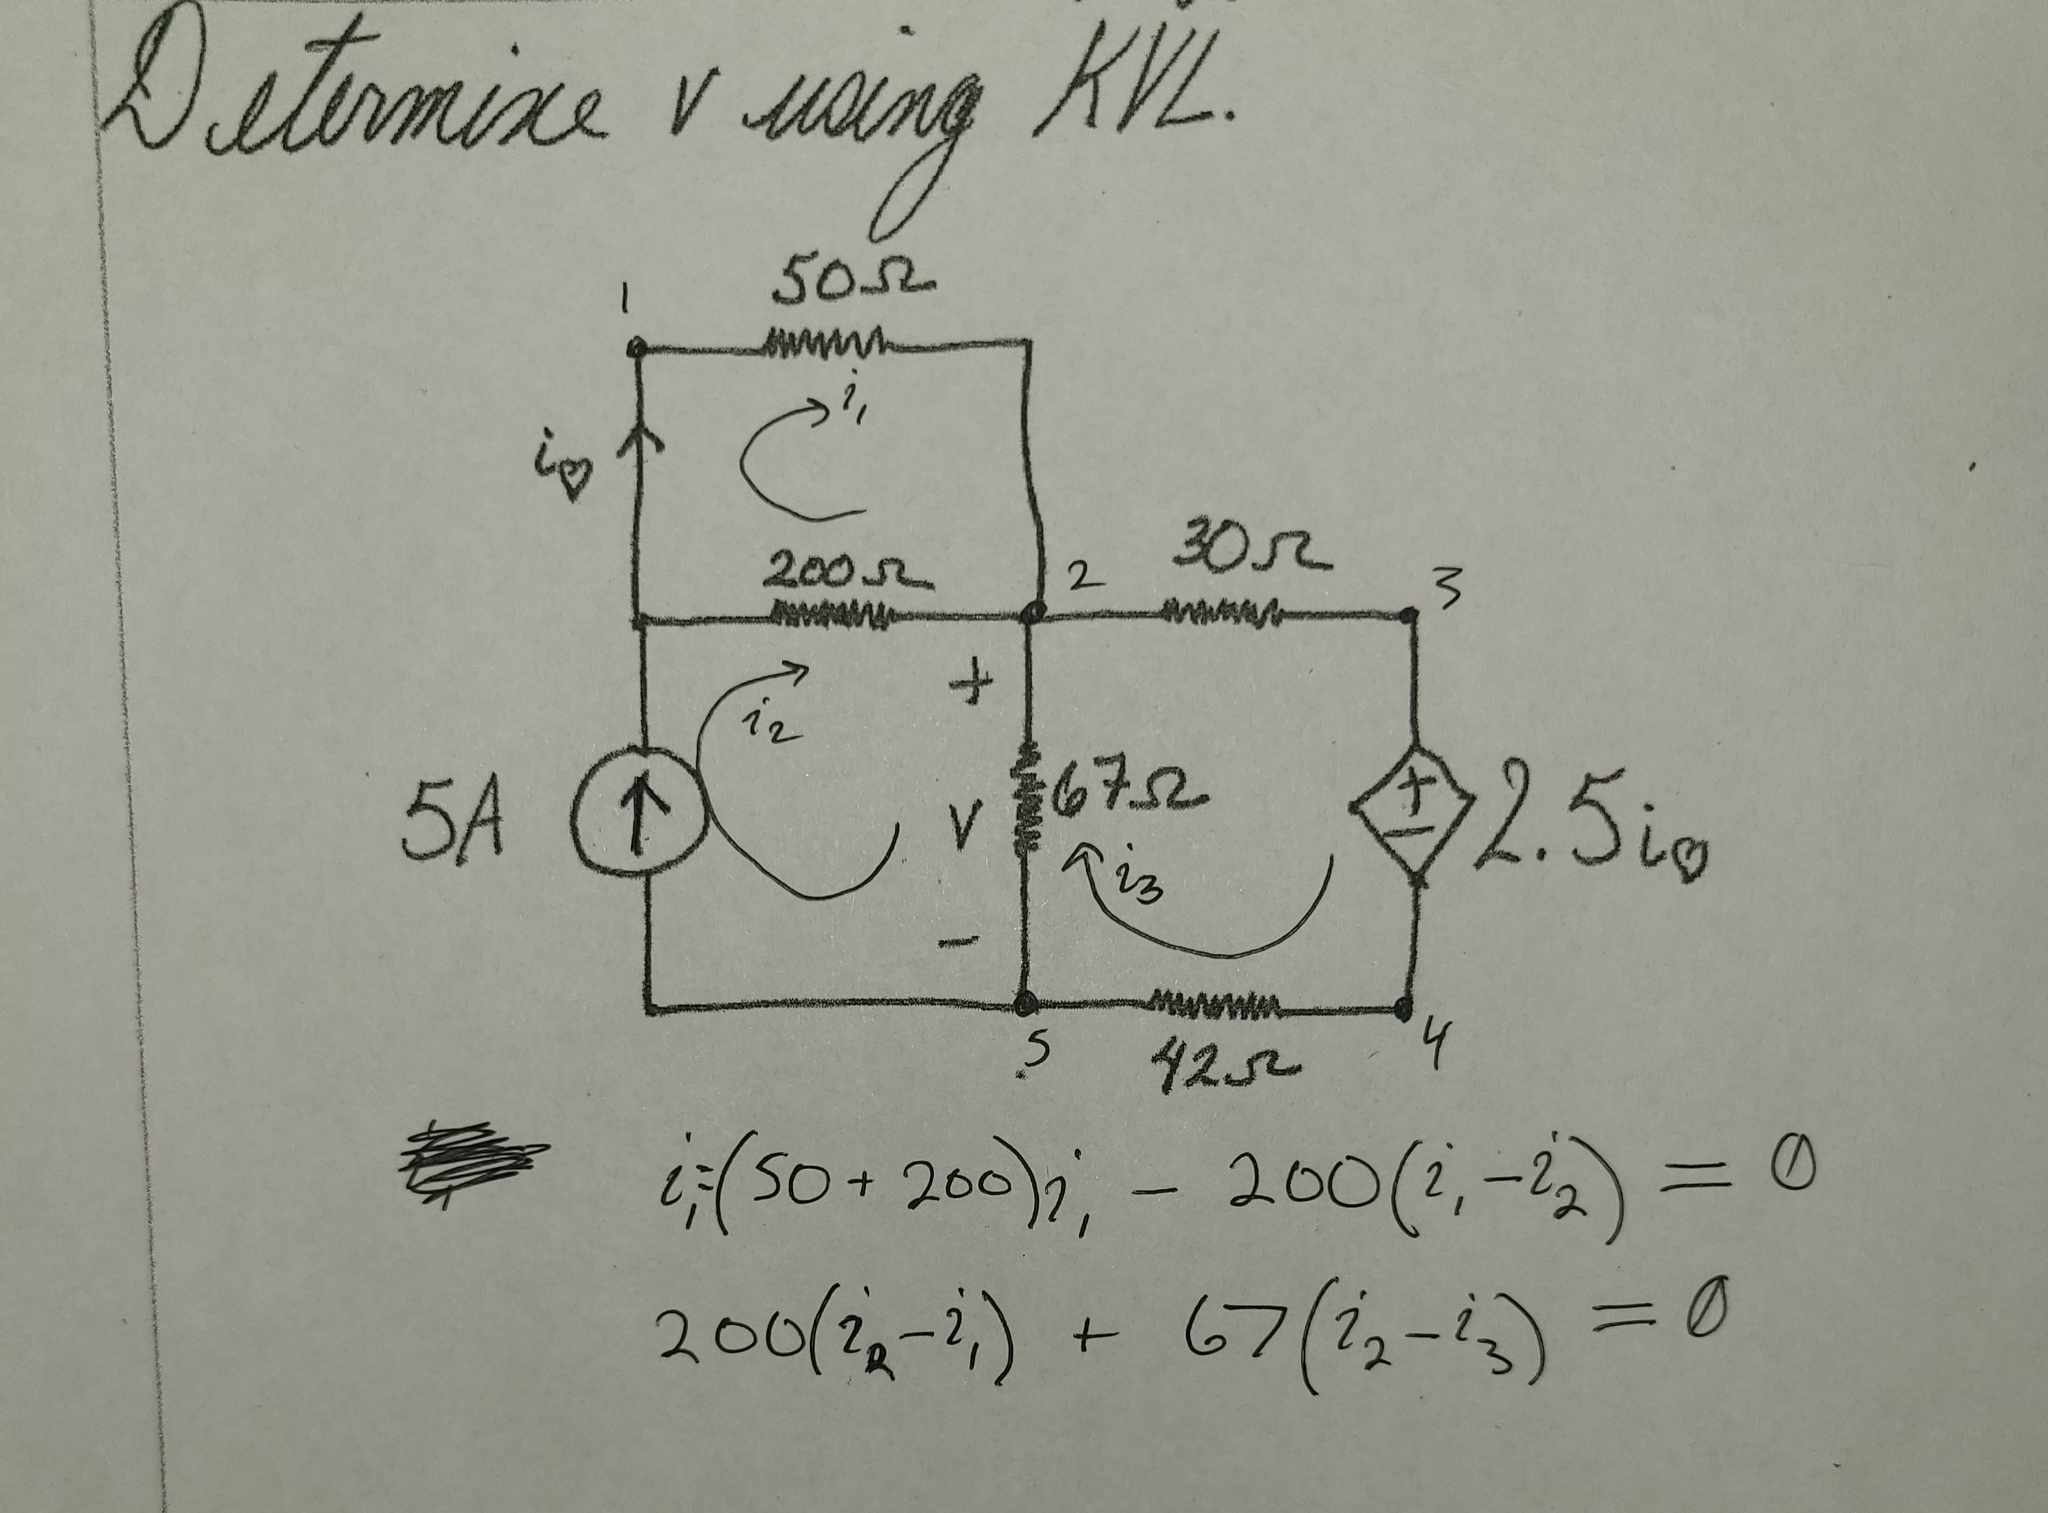 Determine v using KVL.
50Ω
1
i₁
i♡
200Ω
2
30Ω
3
+
i₂
5A
v
67Ω
+
−
2.5i♡
i₃
−
5
42Ω
4
i₁:(50+200)i₁ − 200(i₁−i₂) = 0
200(i₂−i₁) + 67(i₂−i₃) = 0